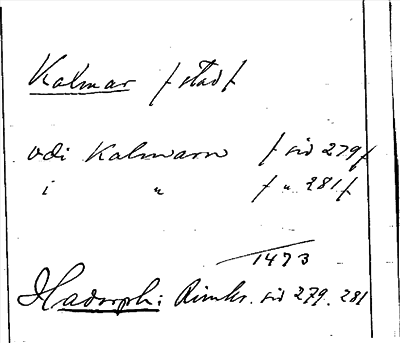 Kalmar / stad /
vdi Kalmarn / sid 279 /
i " / " 281 /
1473
Hadorph: Rimkr. sid 279. 281